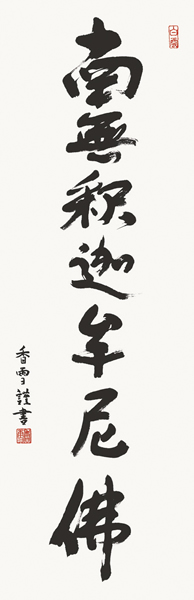 南無釈迦牟尼佛
香雪謹書